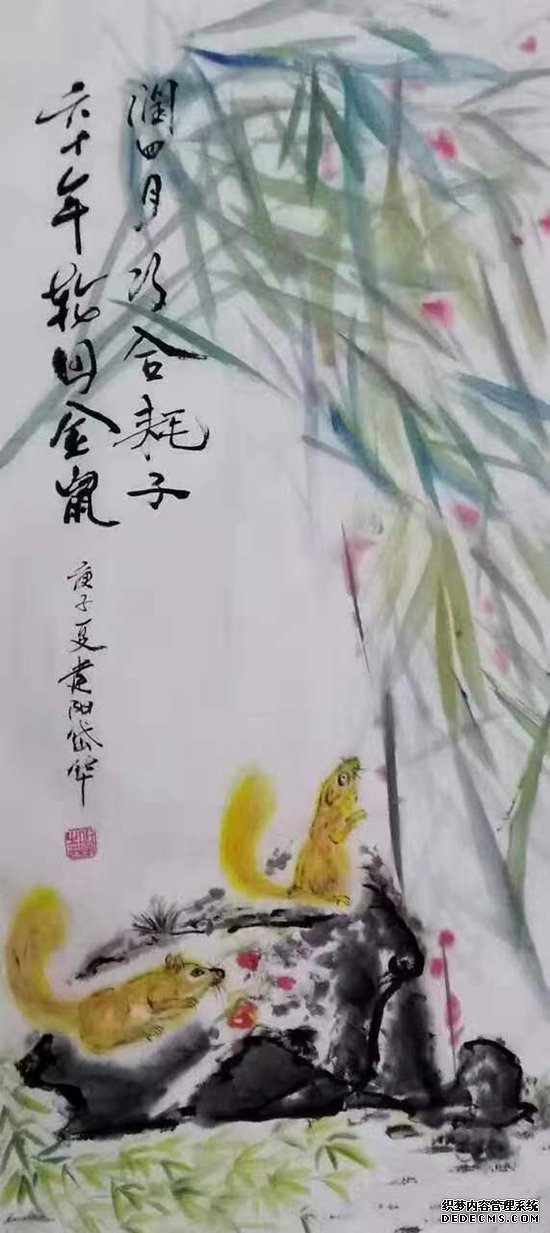 润四月巧合耗子
六十年轮回金鼠
庚子夏阳岱华
织梦内容管理系统
DEDECMS.COM